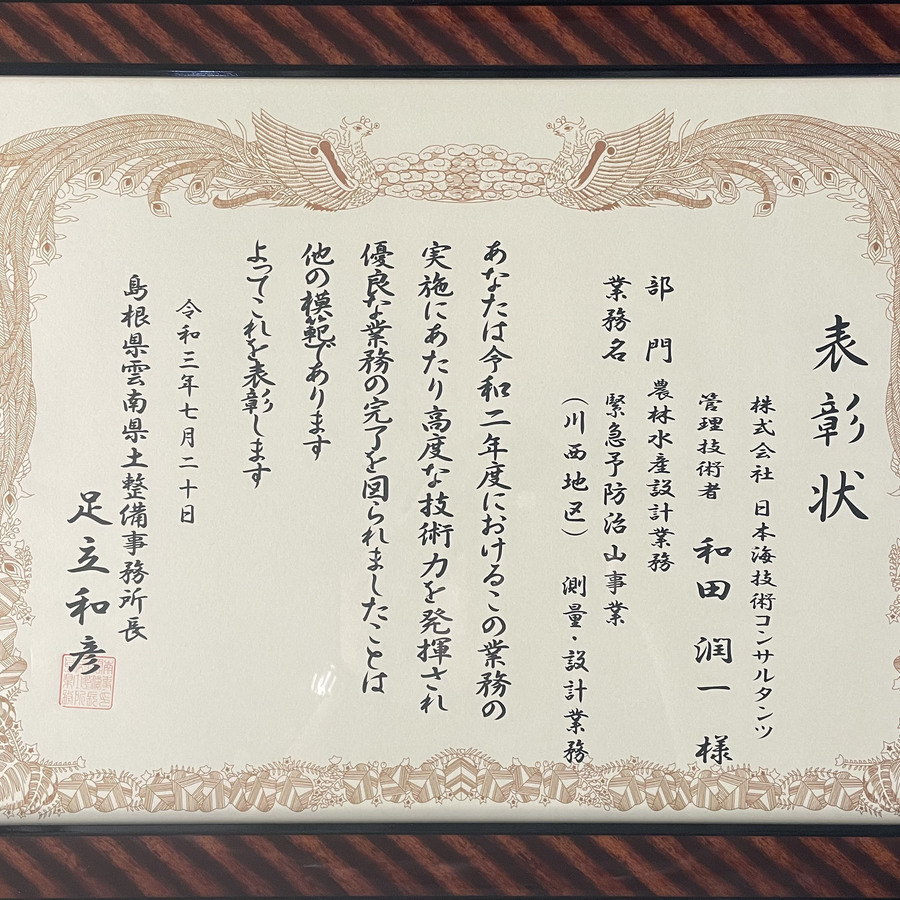 表彰状
株式会社 日本海技術コンサルタンツ
管理技術者 和田 潤一 様
部門 農林水産設計業務
業務名 緊急予防治山事業
(川西地区) 測量・設計業務
あなたは令和二年度におけるこの業務の
実施にあたり高度な技術力を発揮され
優良な業務の完了を図られましたことは
他の模範であります
よってこれを表彰します
令和三年七月二十日
島根県雲南県土整備事務所長
足立和彦